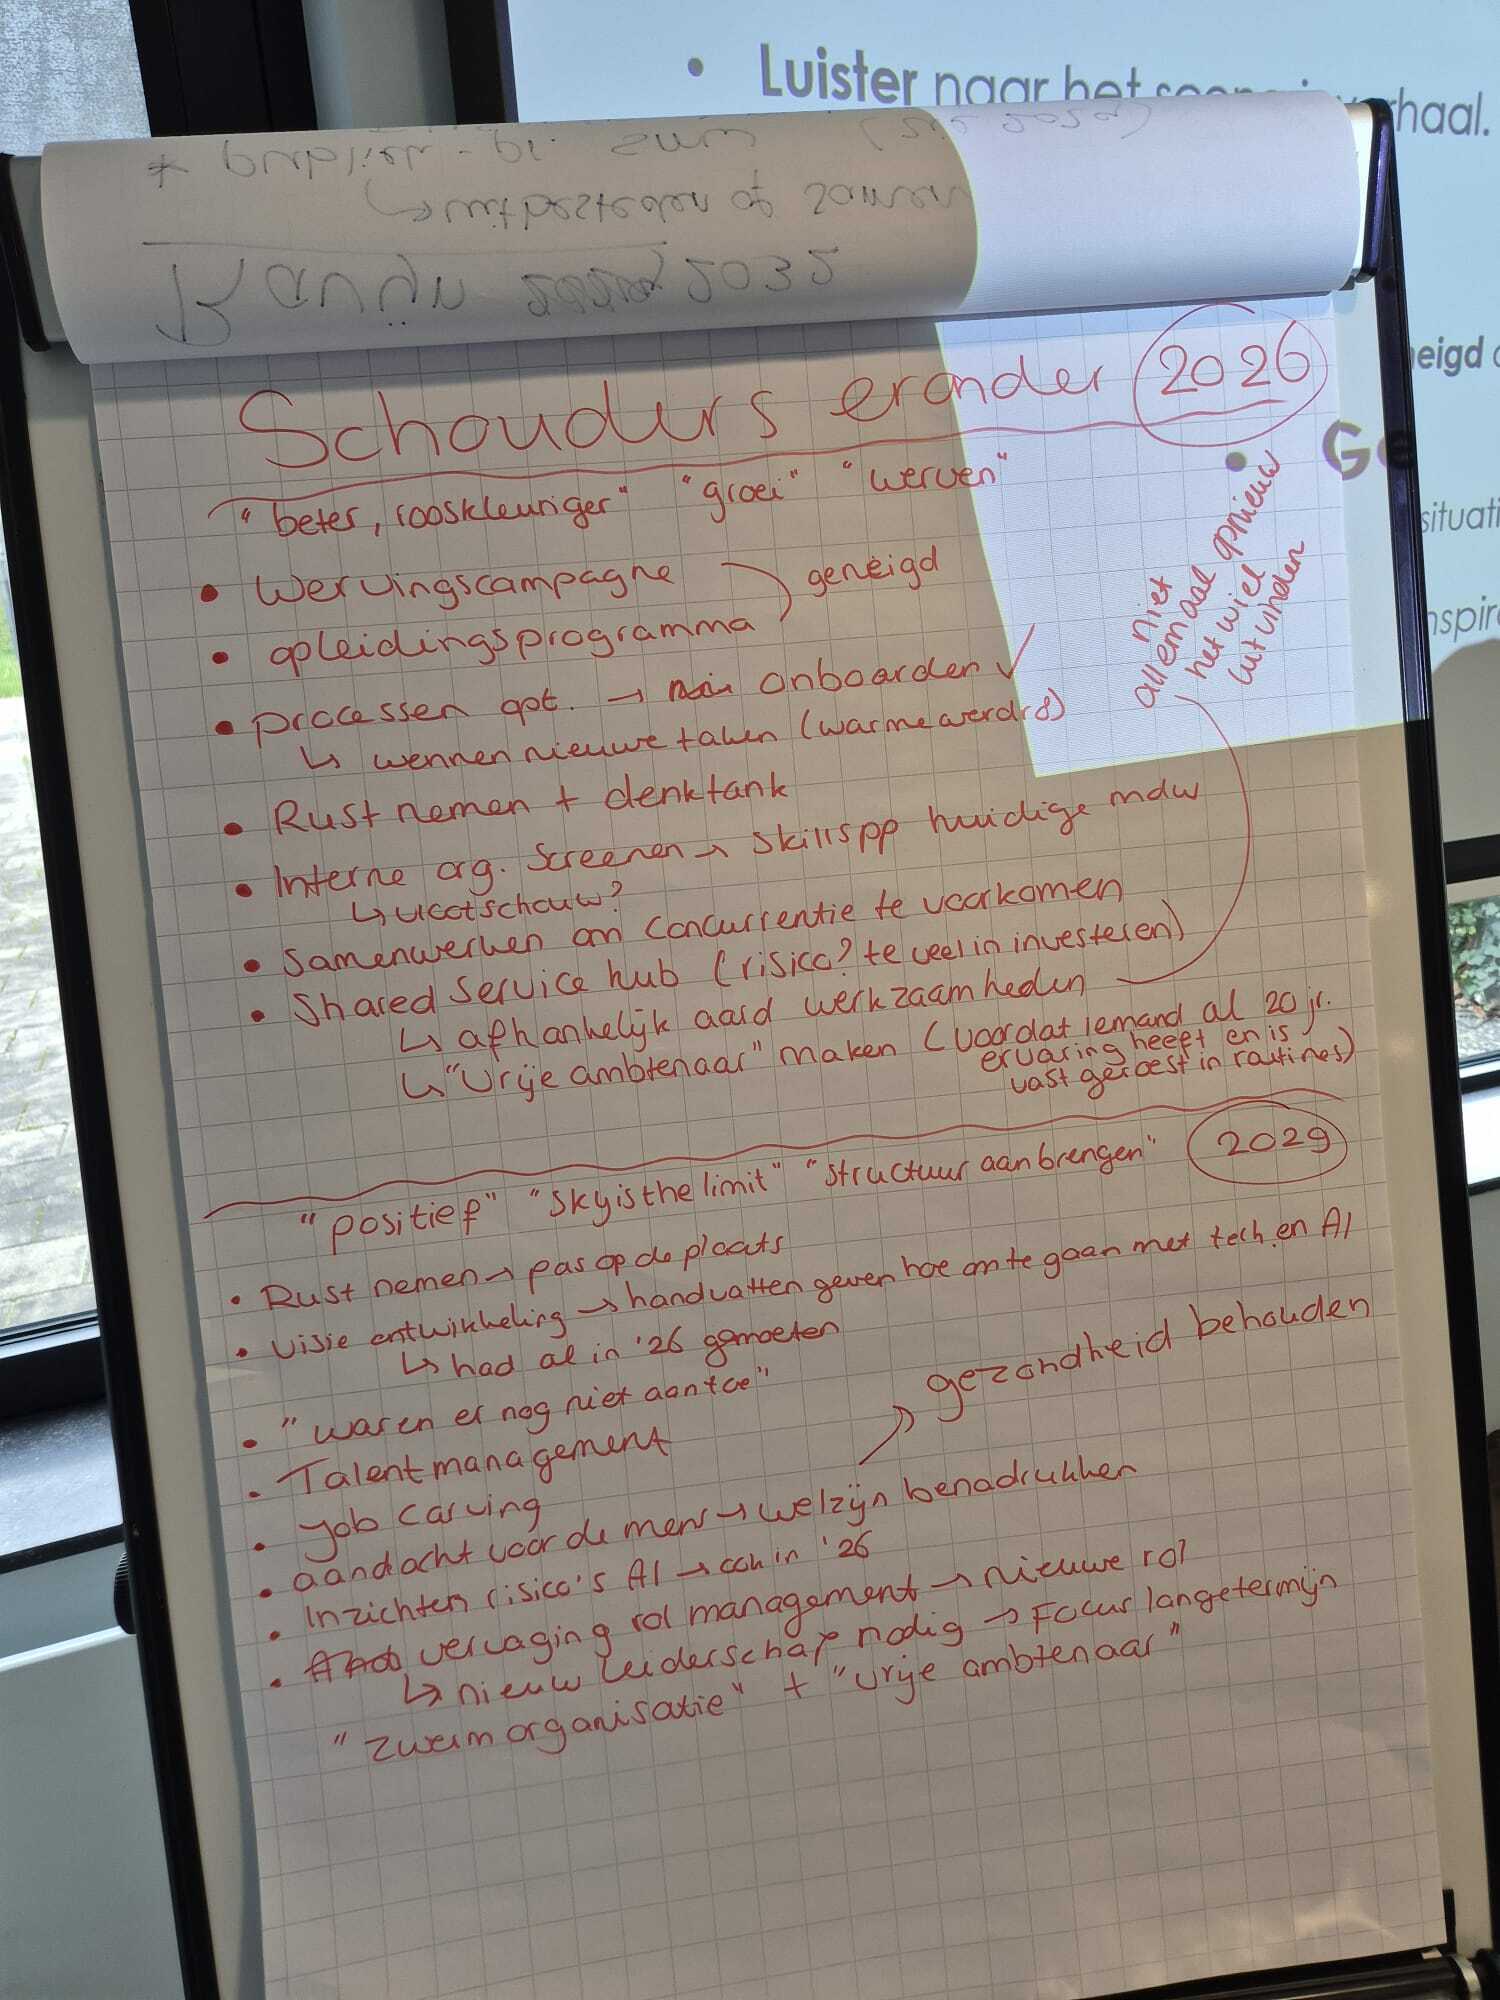 • Luister naar het verhaal.
eigd
• Ge
situati
nspir
* publiek - pr.
↳ uitbesteden of samen
Ravijn 2032
Schouders eronder 2026
"beter, rooskleuriger" "groei" "werven"
• Wervingscampagne
geneigd
• opleidingsprogramma
• processen opt. → onboarden ✓
↳ wennen nieuwe taken (warme
• Rust nemen + denktank
• Interne org. screenen → skills pp huidige mdw
↳ vlootschouw?
• Samenwerken om concurrentie te voorkomen
• Shared service hub (risico? te veel in investeren)
↳ afhankelijk aard werkzaamheden
niet
allemaal opnieuw
het wiel
uitvinden
↳ "vrije ambtenaar" maken (voordat iemand al 20 jr.
ervaring heeft en is
vast geroest in routines)
2029
"positief" "sky is the limit" "structuur aanbrengen"
• Rust nemen → pas op de plaats
• visie ontwikkeling → handvatten geven hoe om te gaan met tech. en AI
↳ had al in '26 gemoeten
• "waren er nog niet aan toe"
• Talentmanagement
• job carving
• aandacht voor de mens → welzijn benadrukken
→ gezondheid behouden
• Inzichten risico's AI → ook in '26
• vervaging rol management → nieuwe rol
↳ nieuw leiderschap nodig → Focus langetermijn
"zwermorganisatie" + "vrije ambtenaar"